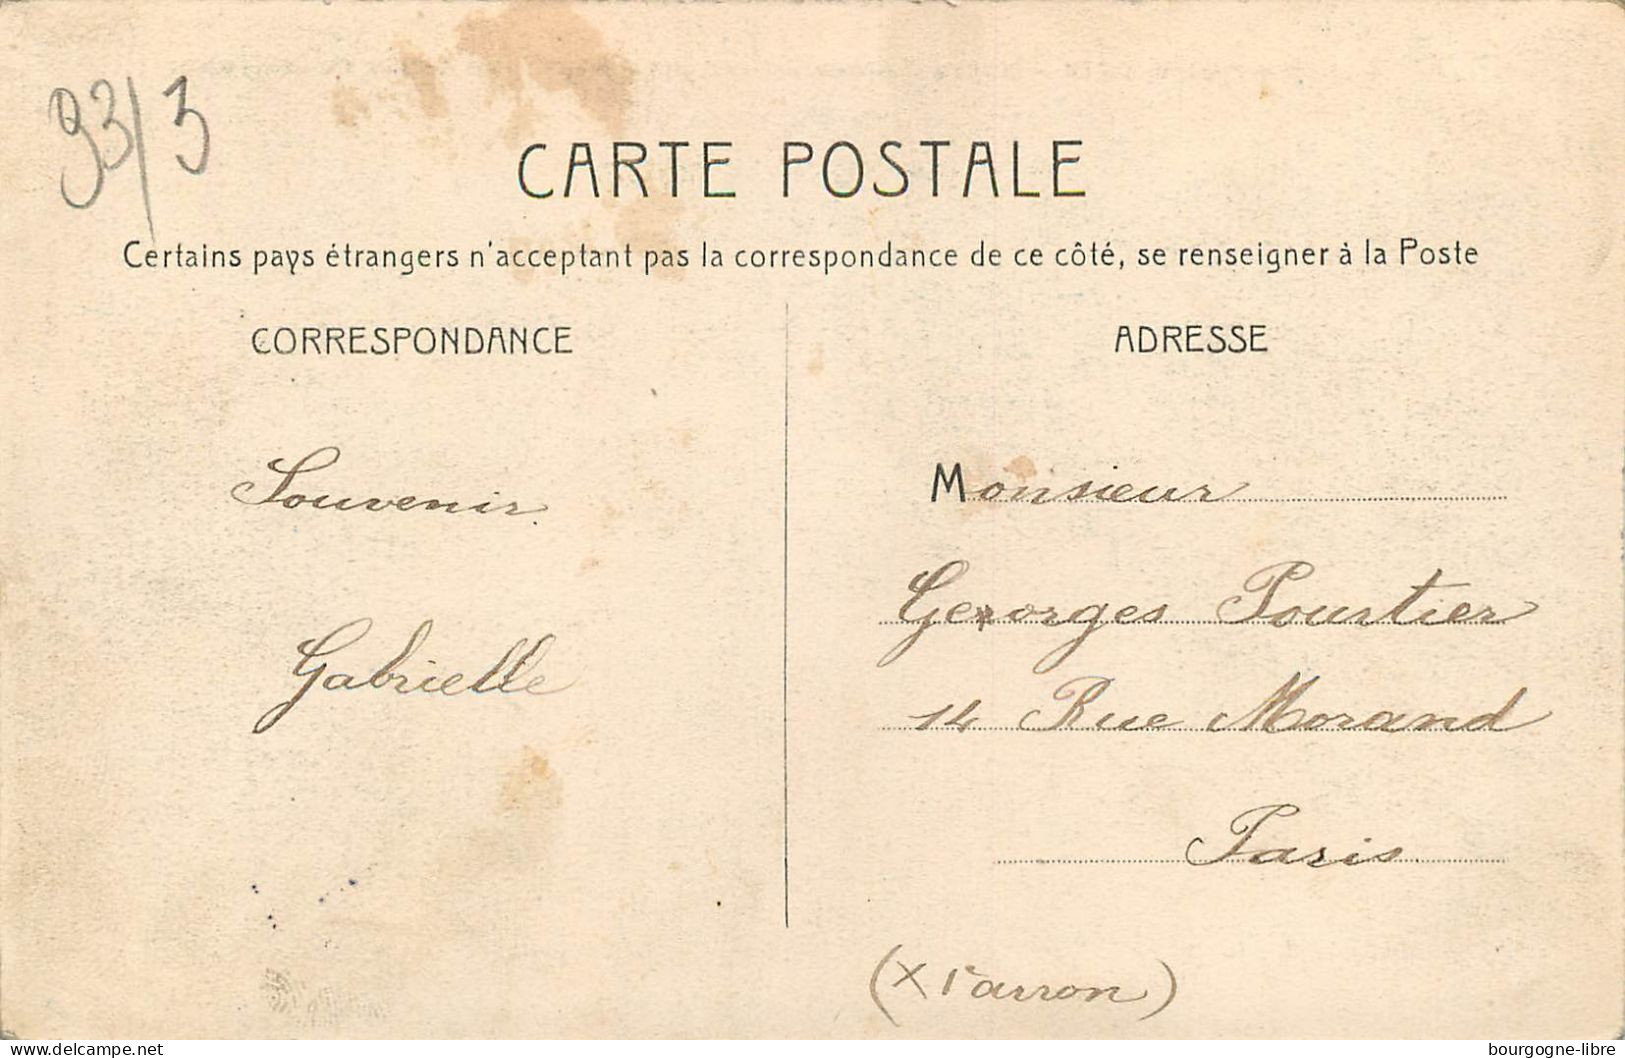 93/3
CARTE POSTALE
Certains pays étrangers n'acceptant pas la correspondance de ce côté, se renseigner à la Poste
CORRESPONDANCE
Souvenir
Gabrielle
ADRESSE
Monsieur
Georges Pourtier
14 Rue Morand
Paris
(XI arron)
www.delcampe.net
bourgogne-libre